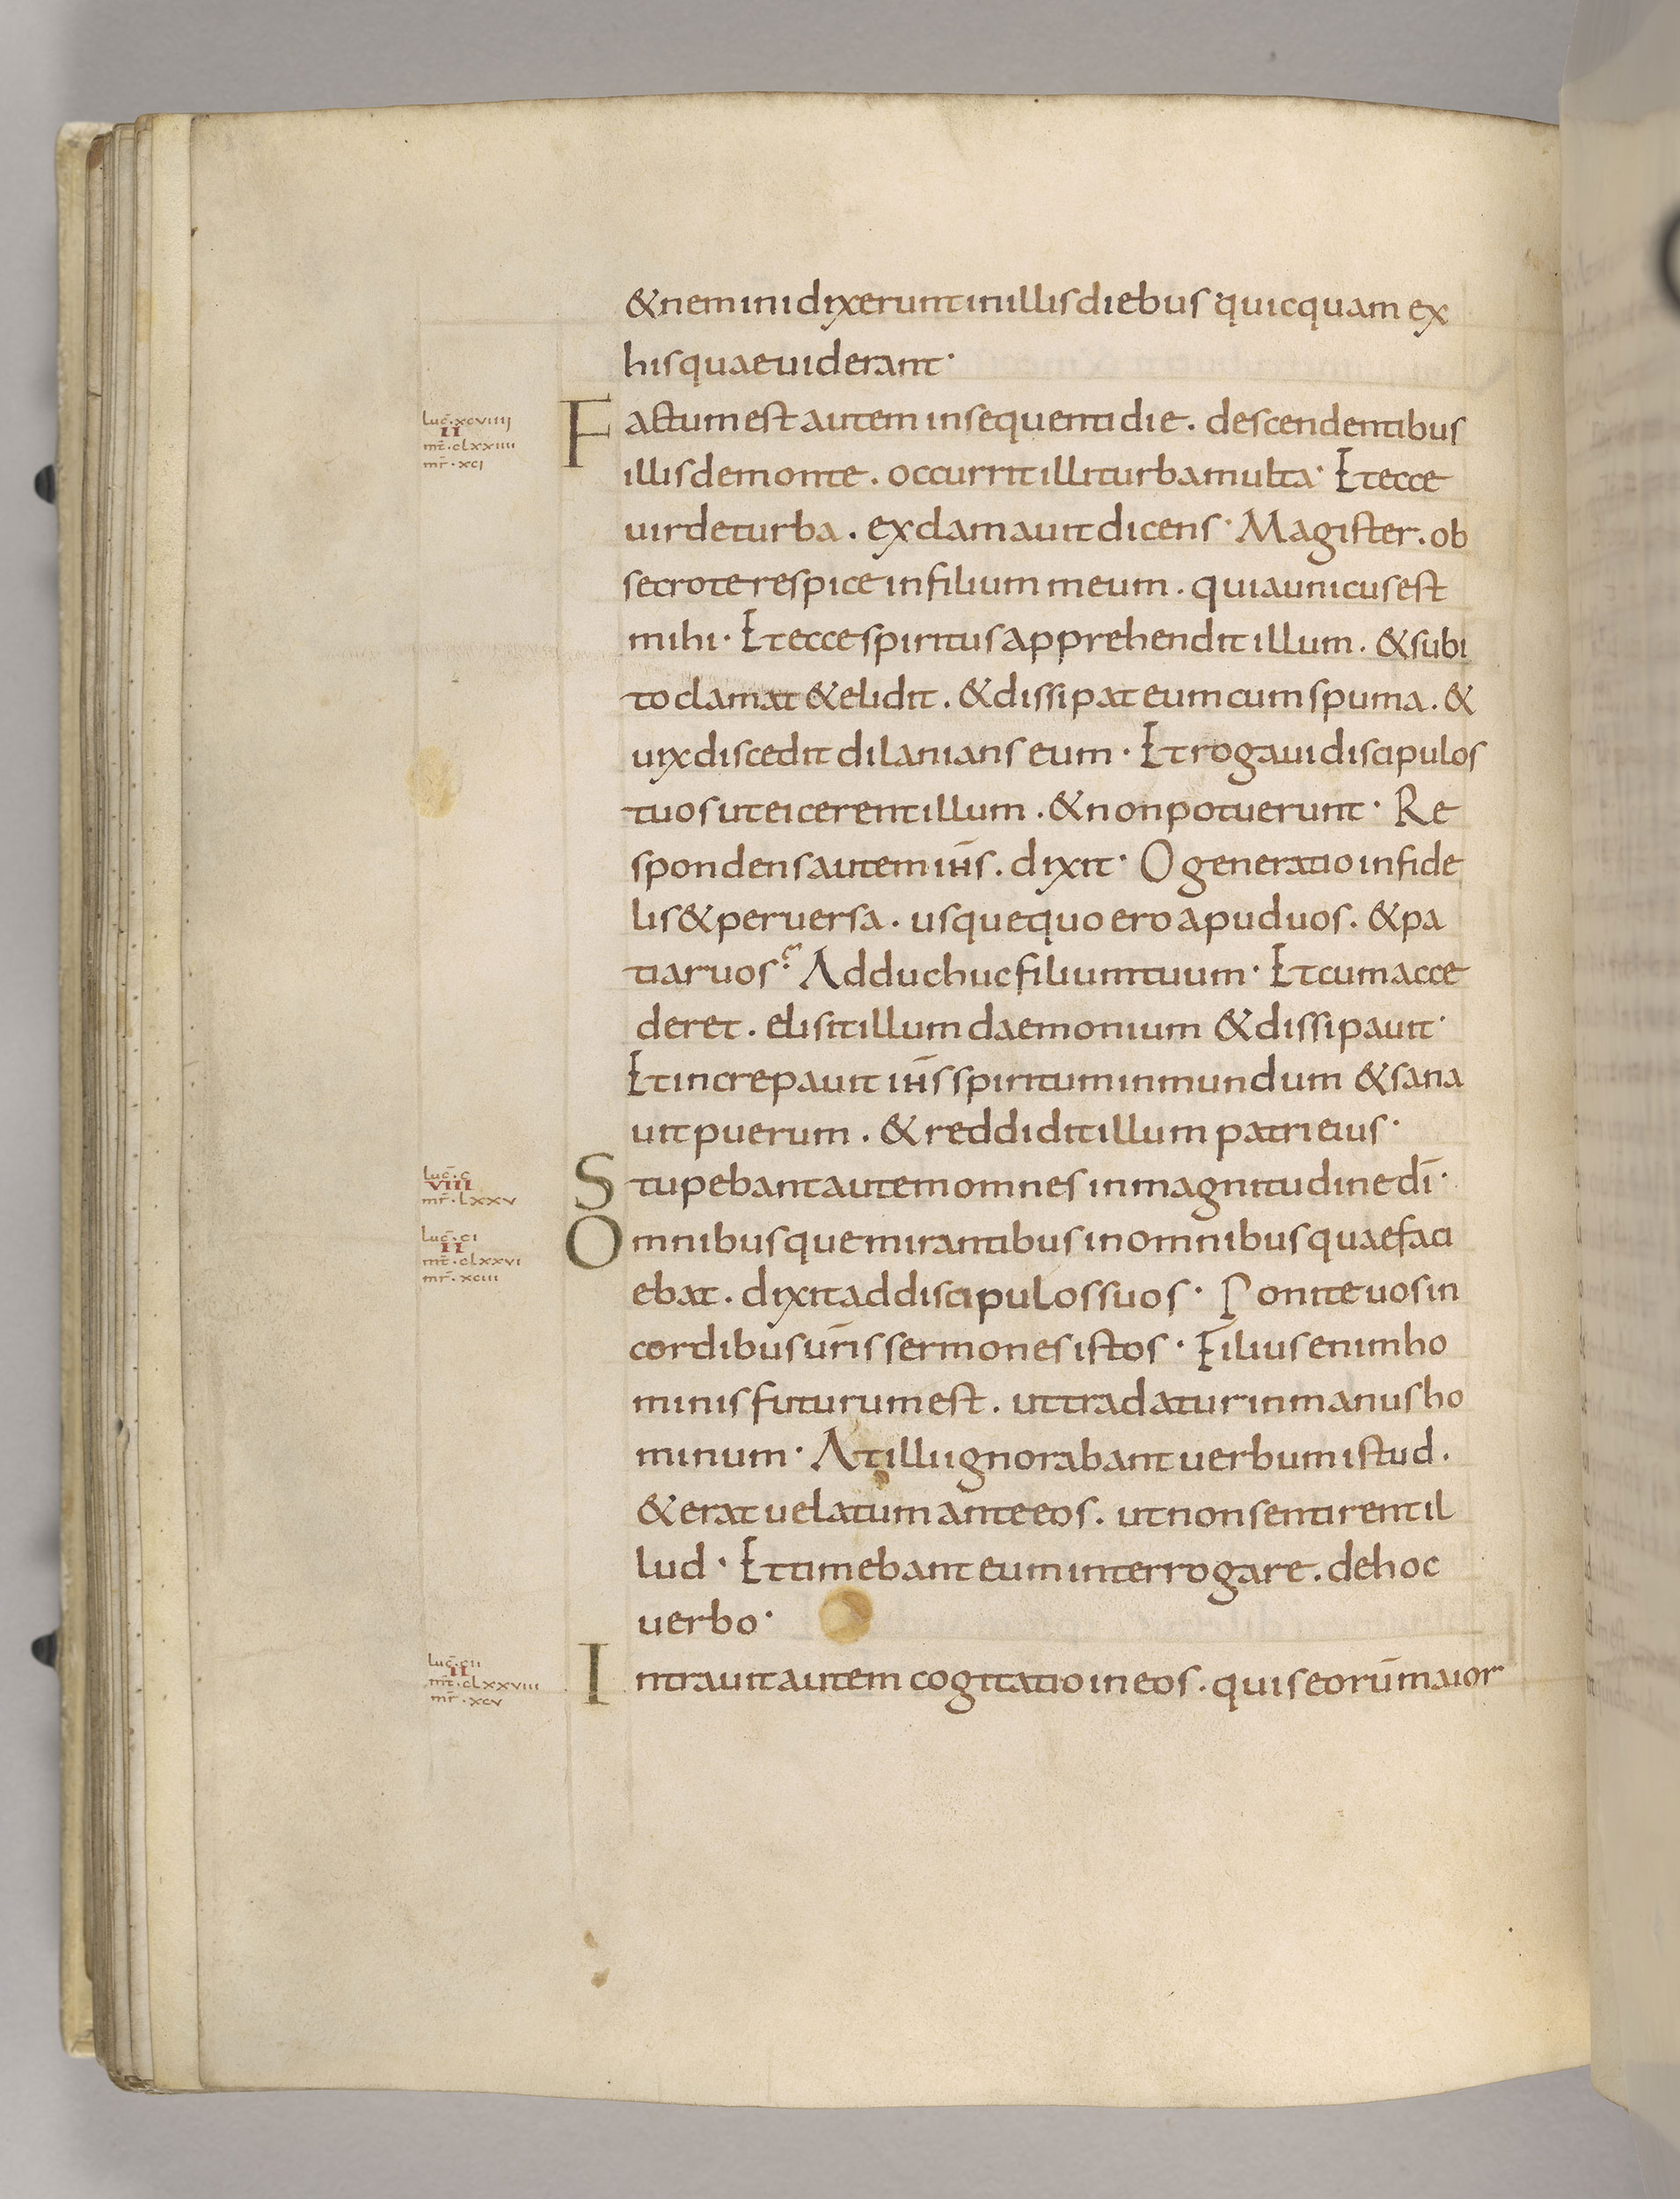 & nemini dixerunt in illis diebus quicquam ex
his quae uiderant·
luc̄·xcviiii
II
mt̄·clxxiiii
mr̄·xci
Factum est autem in sequenti die. descendentibus
illis de monte. occurrit illi turba multa· Et ecce
uir de turba. exclamauit dicens· Magister. ob
secro te respice in filium meum. quia unicus est
mihi· Et ecce spiritus apprehendit illum. & subi
to clamat & elidit. & dissipat eum cum spuma. &
uix discedit dilanians eum· Et rogaui discipulos
tuos ut eicerent illum. & non potuerunt· Re
spondens autem ih̄s. dixit· O generatio infide
lis & peruersa. usquequo ero apud uos. & pa
tiar uos? Adduc huc filium tuum· Et cum acce
deret. elisit illum daemonium & dissipauit·
Et increpauit ih̄s spiritum inmundum & sana
uit puerum. & reddidit illum patri eius·
luc̄·c
VIII
mr̄·lxxv
Stupebant autem omnes in magnitudine dī·
luc̄·ci
II
mt̄·clxxvi
mr̄·xciii
Omnibusque mirantibus in omnibus quae faci
ebat. dixit ad discipulos suos· Ponite uos in
cordibus ur̄is sermones istos· Filius enim ho
minis futurum est. ut tradatur in manus ho
minum· At illi ignorabant uerbum istud.
& erat uelatum ante eos. ut non sentirent il
lud· Et timebant eum interrogare. de hoc
uerbo·
luc̄·cii
II
mt̄·clxxviii
mr̄·xcv
Intrauit autem cogitatio in eos. quis eorū maior